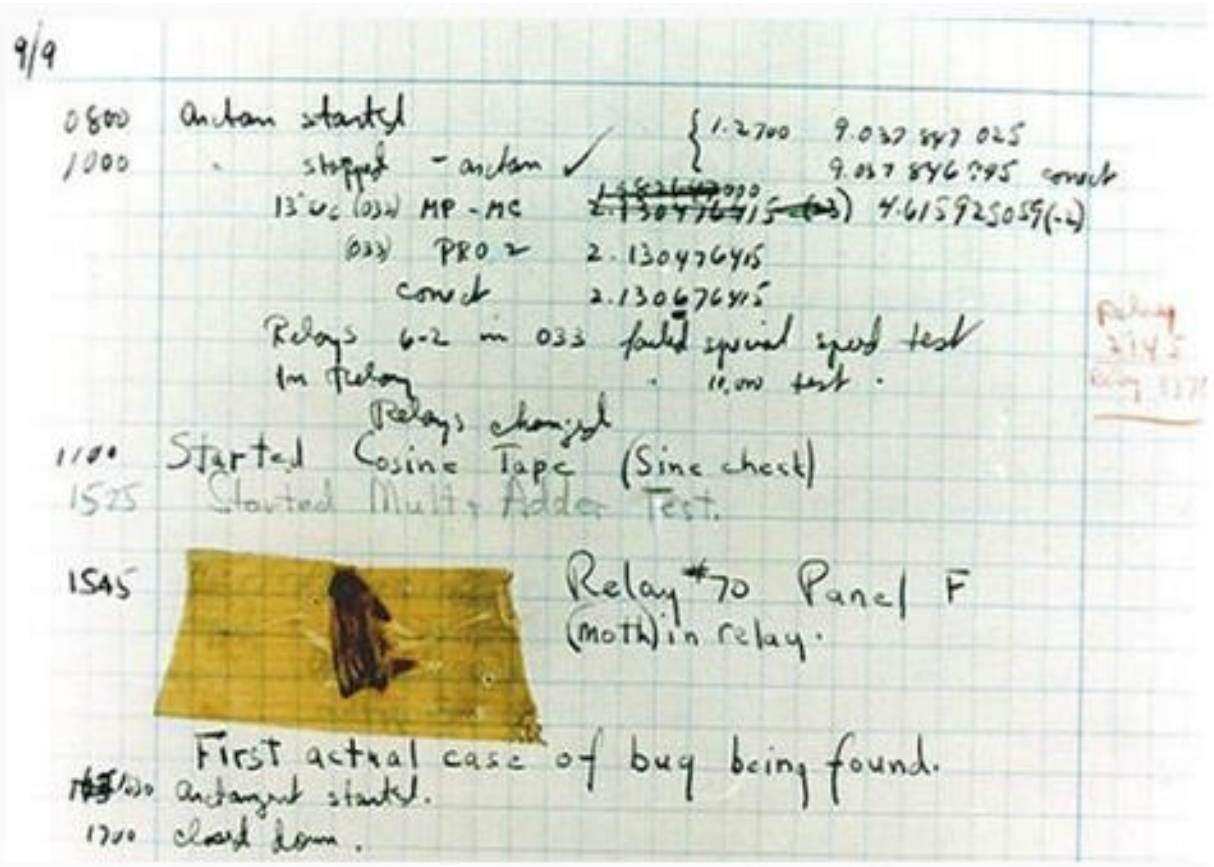 9/9
0800 Antan started { 1.2700 9.037 847 025
1000 " stopped - antan ✓ 9.037 846 795 correct
13"uc (032) MP - MC 2.130476415 (-3) 4.615925059(-2)
(033) PRO 2 2.130476415
correct 2.130676415
Relays 6-2 in 033 failed special speed test
In Relay " 10,000 test .
Relay
2145
Relay
Relays changed
1100 Started Cosine Tape (Sine check)
1525 Started Mult + Adder Test.
1545 Relay #70 Panel F
(moth) in relay.
First actual case of bug being found.
1630 antangent started.
1700 closed down.